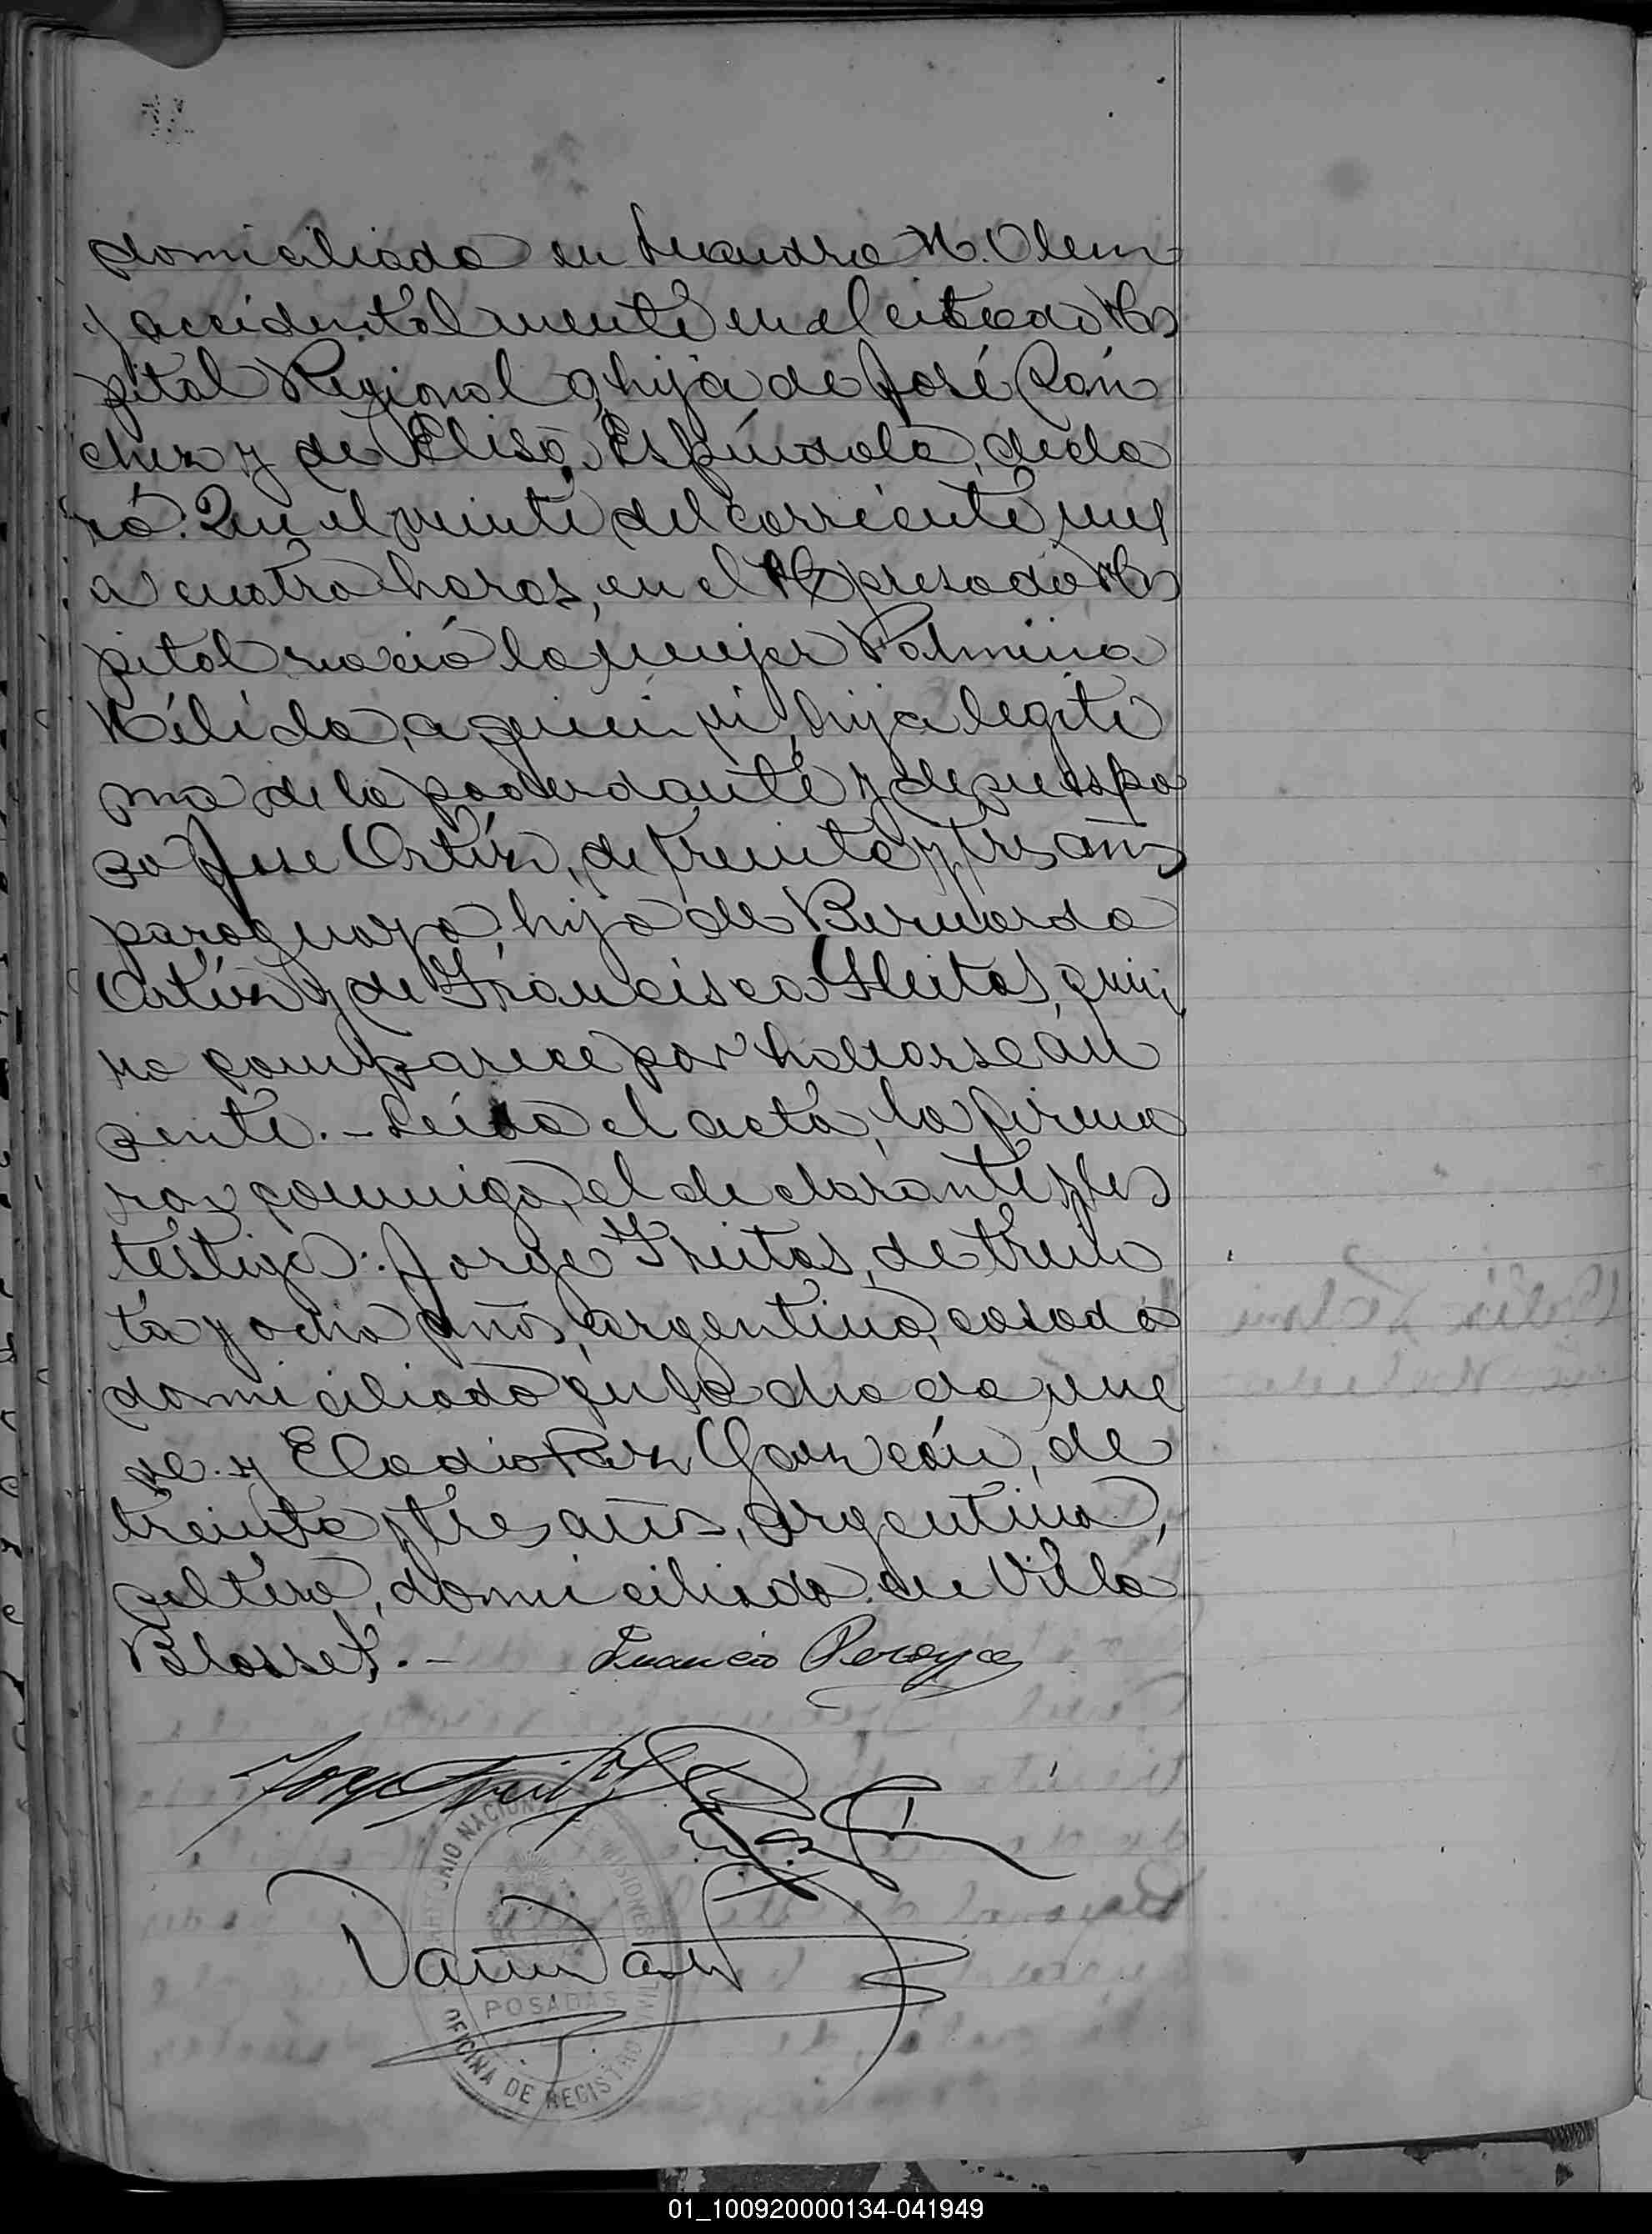 domiciliada en Leandro N. Alem
y accidentalmente en el citado Hos
pital Regional, hija de José Sán
chez y de Elisa Espíndola, decla
ró: Que el veinte del corriente mes
a cuatro horas, en el expresado Hos
pital nació la mujer Palmira
Nélida, a quien vi, hija legíti
ma de la poderdante y de su espo
so José Ortíz, de treinta y tres años
paraguayo, hijo de Bernardo
Ortíz y de Francisca Fleitas, quien
no comparece por hallarse au
sente.- Leída el acta, la firma
ron conmigo, el declarante y los
testigos: Jorge Freitas, de trein
ta y ocho años, argentino, casado
domiciliado en la chacra nue
ve y Eladio Paz Garzón, de
treinta y tres años, argentino,
soltero, domiciliado en Villa
Blosset.-
Pereyra
Jorge Freitas
TERRITORIO NACIONAL DE MISIONES
POSADAS
OFICINA DE REGISTRO CIVIL
01_100920000134-041949